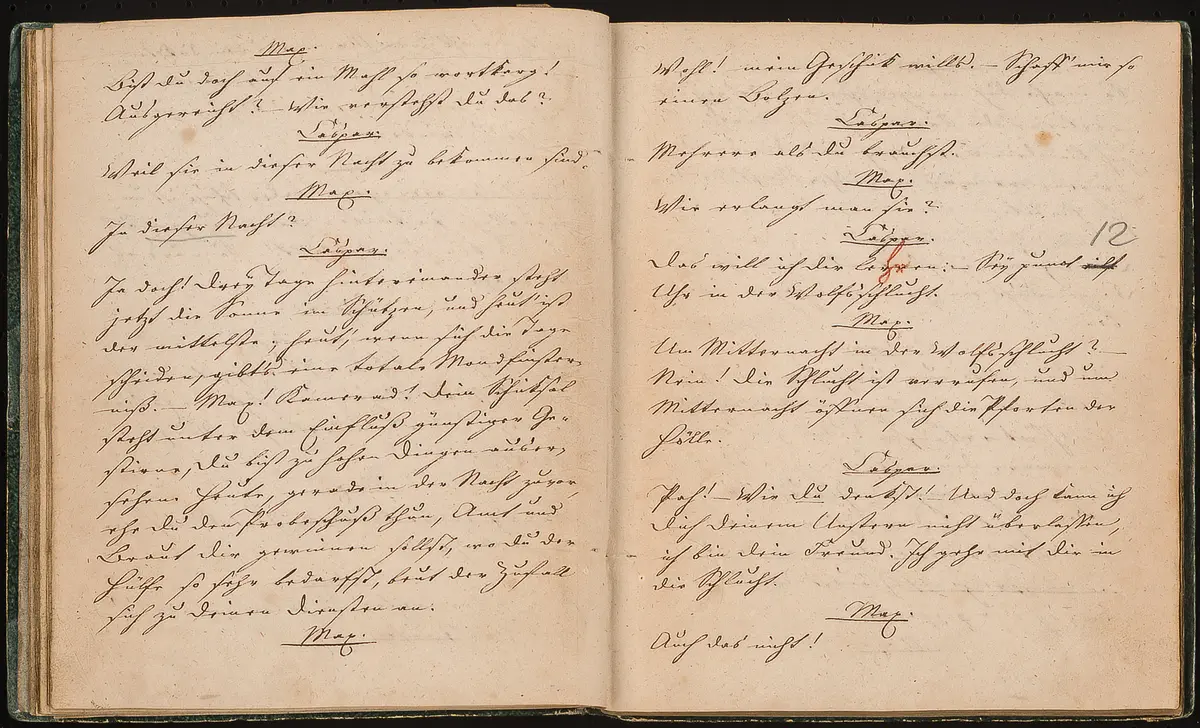 Max.
Bist du doch auf ein Mahl so wortkarg!
Ausgereicht? – Wie verstehst du das?
Caspar.
Weil sie in dieser Nacht zu bekommen sind.
Max.
In dieser Nacht?
Caspar.
Ja doch! Drey Tage hintereinander steht
jetzt die Sonne im Schützen, und heut' ist
der mittelste; heut', wenn sich die Tage
scheiden, gibts eine totale Mondfinster-
niß. – Max! Kamerad! Dein Schiksal
steht unter dem Einfluß günstiger Ge-
stirne, Du bist zu hohen Dingen auser-
sehen. Heute, gerade in der Nacht zuvor,
ehe du den Probeschuß thun, Amt und
Braut dir gewinnen sollst, wo du der
Hülfe so sehr bedarfst, beut der Zufall
sich zu deinen Diensten an.
Max.
Wohl! mein Geschik wills. – Schaff' mir so
einen Bolzen.
Caspar.
Mehrere als du brauchst.
Max.
Wie erlangt man sie?
Caspar.
12
Das will ich dir lehren. – Sey punct
Uhr in der Wolfsschlucht.
Max.
Um Mitternacht in der Wolfsschlucht? –
Nein! die Schlucht ist verrufen, und um
Mitternacht öffnen sich die Pforten der
Hölle.
Caspar.
Pah! – Wie du denkst! – Und doch kann ich
dich deinem Unstern nicht überlassen,
ich bin dein Freund. Ich gehe mit dir in
die Schlucht.
Max.
Auch das nicht!